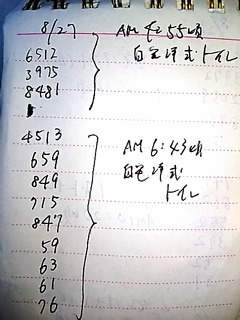 8/27
6512
3975
8481
AM 4:55頃
自宅洋式トイレ
4513
659
849
715
847
59
63
61
76
AM 6:43頃
自宅洋式
トイレ